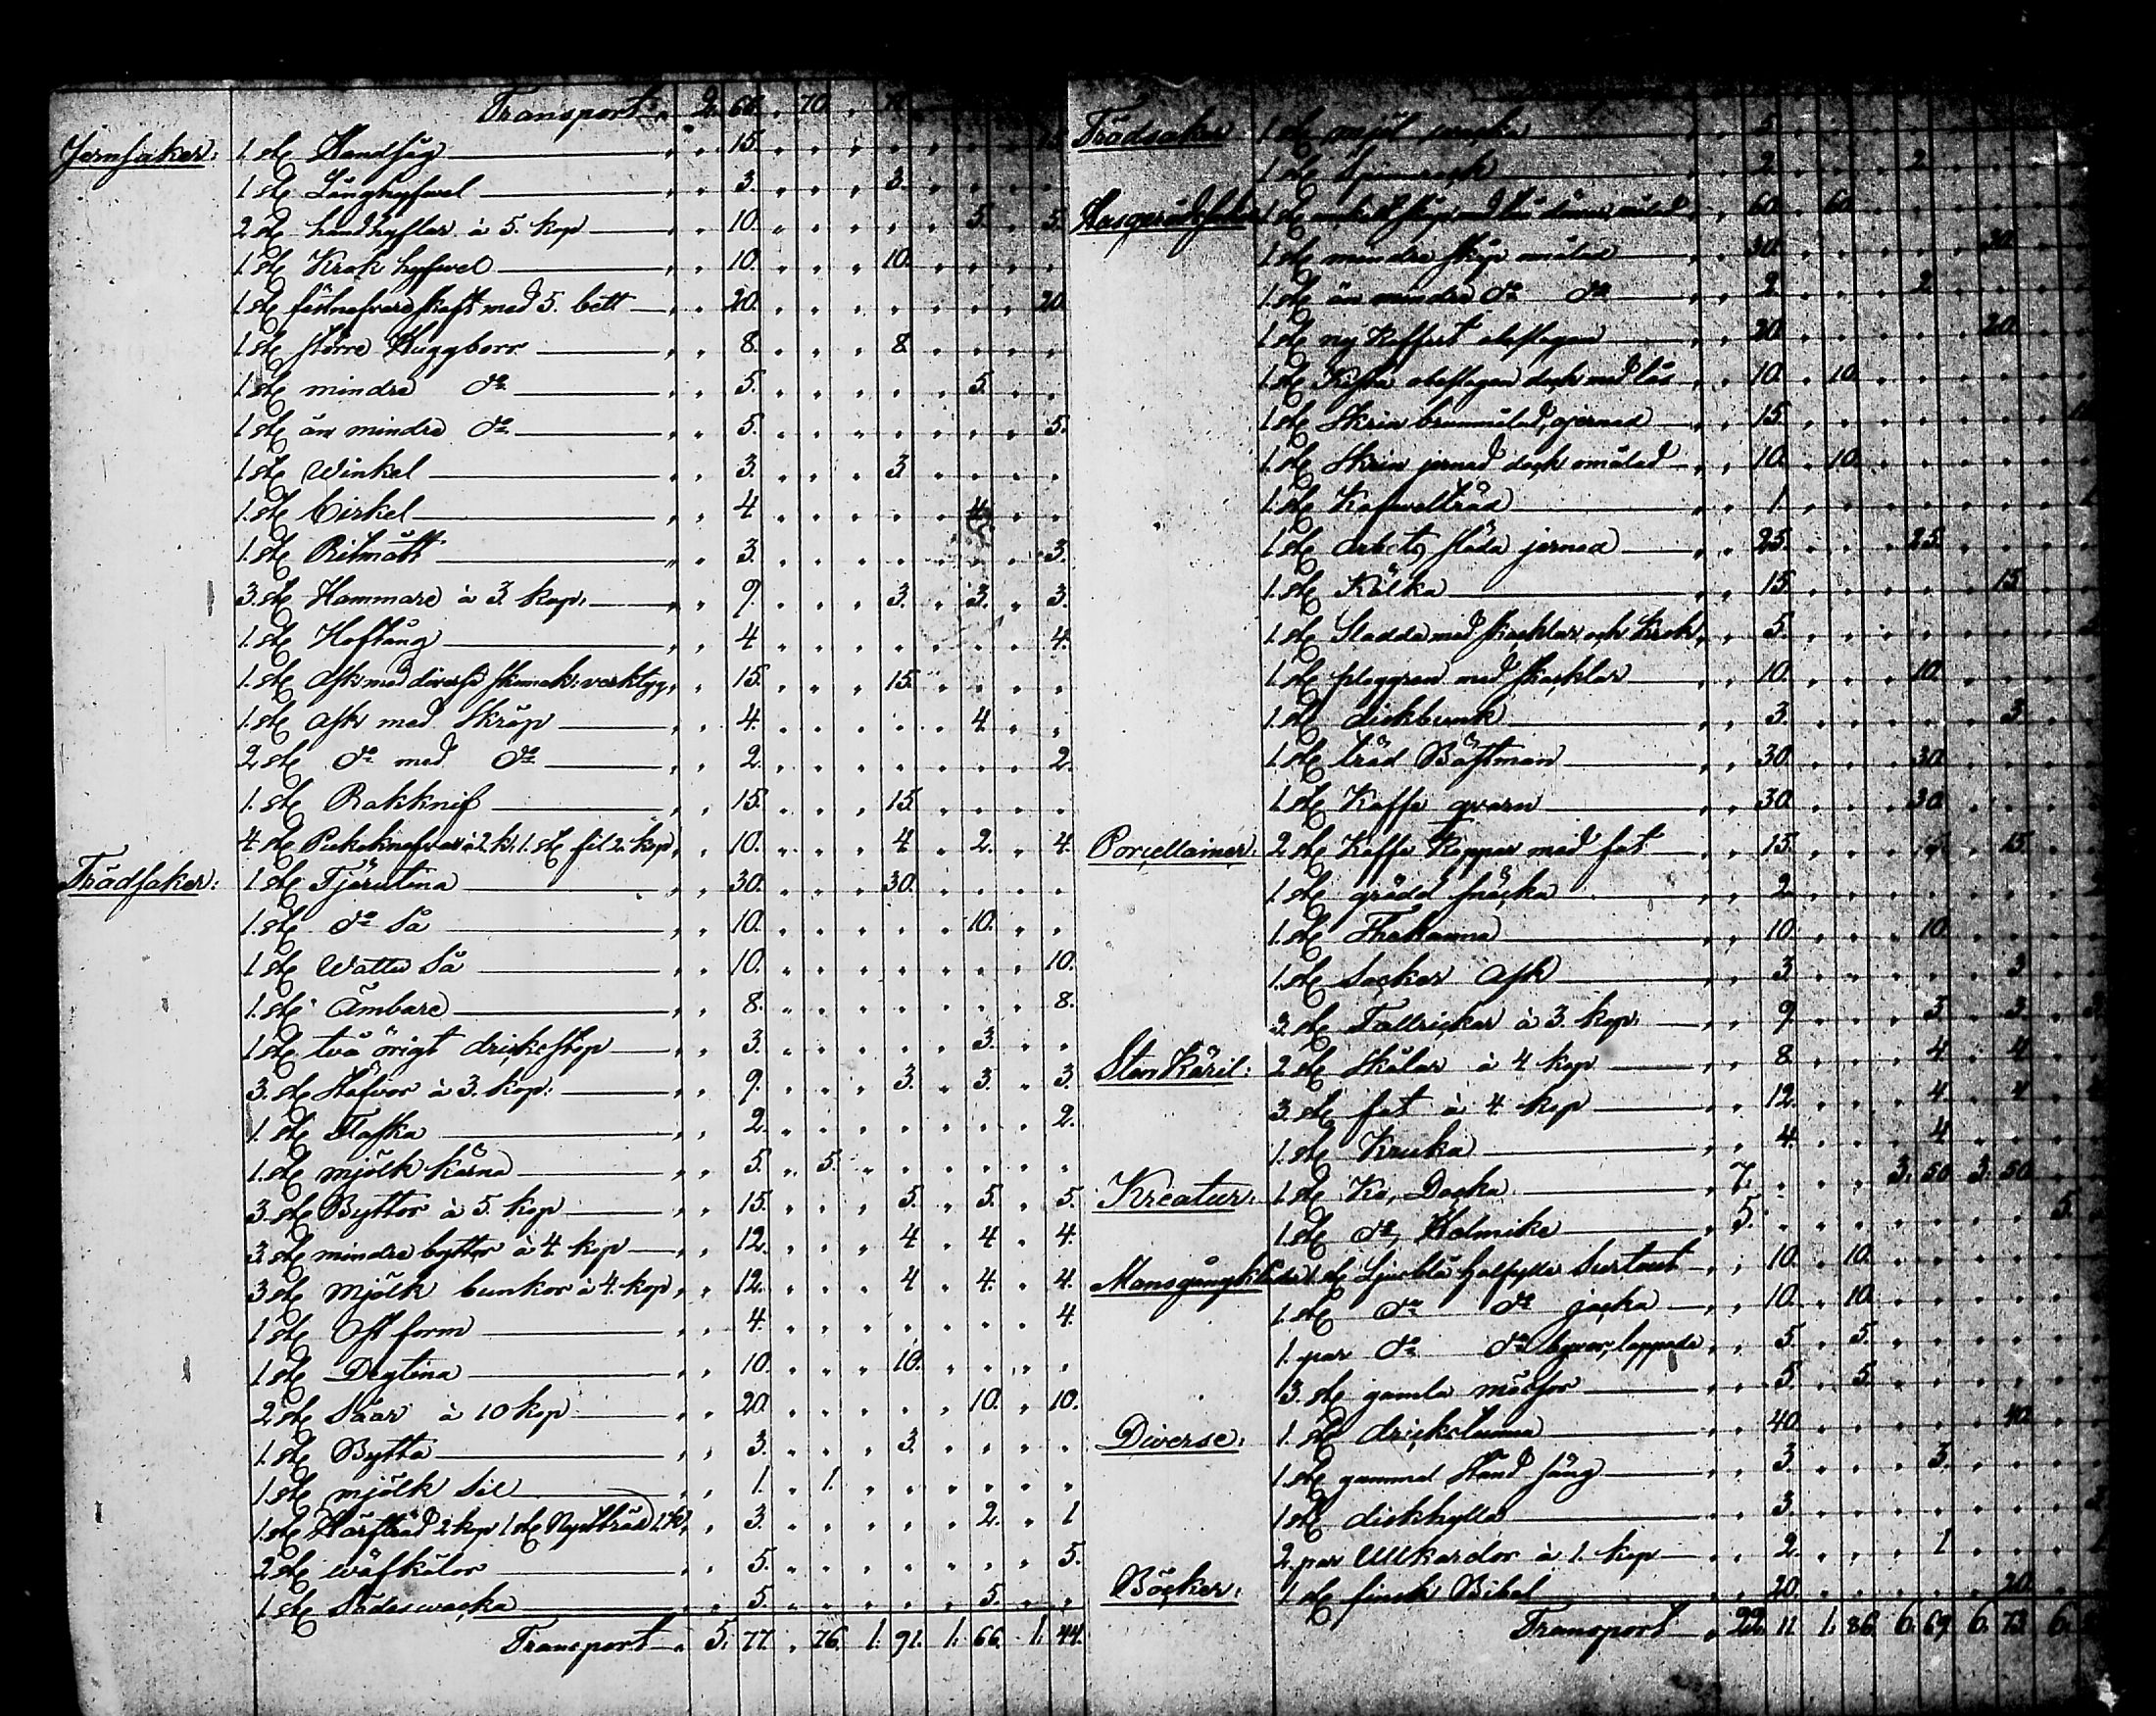 Transport 2. 66. 70.
Jernsaker: 1 st Handsåg 15. 15.
1 st Långhyfvel 3. 3.
2 st handhyflar à 5. kop 10. 5. 5.
1 st Krok hyfvel 10. 10.
1 st fösnafvare skaft med 5. bett 20. 20.
1 st större Kuggborr 8. 8.
1 st mindre do 5. 5.
1 st än mindre do 5. 5.
1 st Winkel 3. 3
1. st Cirkel 4 4
1. st Ritmått 3. 3.
3. st Hammare à 3. kop. 9. 3. 3. 3.
1. st Hoftång 4 4.
1. st Ask med diverse skomak: verktyg 15. 15.
1. st Ask med Skräp 4. 4
2 st do med do 2. 2.
1. st Rakknif 15. 15
4 st à 2. k. 1. st fil 2. kop 10. 4 2. 4.
Trädsaker: 1 st Tjärutina 30. 30.
1. st do Så 10. 10.
1 st Watten Så 10. 10.
1. st Ämbare 8. 8.
1 st två örigt drickestop 3. 3.
3. st Stäfvor à 3. kop. 9. 3. 3. 3.
1. st Flaska 2. 2.
1. st mjölk kärna 5. 5.
3. st Byttor à 5. kop 15. 5. 5. 5.
3 st mindre byttor à 4 kop 12. 4 4 4.
3 st Mjölk bunkor à 4. kop 12. 4 4. 4.
1 st Ost form 4. 4.
1 st Degtina 10. 10.
2 st Såar à 10 kop 20 10. 10.
1. st Bytta 3. 3.
1 st mjölk Sil 1. 1.
1. st 2 kop 1 st 1. k. 3. 2. 1
2 st wäfskälor 5. 5.
1 st Sädeswacka 5 5.
Transport 5. 77. 76. 1. 91. 1. 66. 1. 44.
Trädsaker 1 st mjöl wacka 5
1 st Spinnrock 2. 2.
Husgerådssaker 1 st skåp med två dörrar målad 60. 60
1 st mindre skåp målad 30. 30
1. st än mindre do do 2 2.
1 st ny Koffert obeslagen 20. 20
1. st Kista obeslagen dock med lås 10. 10.
1. st Skrin brunmålad, ojernad 15.
1. st Skrin jernad dock omålad 10. 10.
1. st Kafwelträd 1.
1 st Arbets släda jernad 25. 25.
1. st Kälka 15. 15.
1. st Sladda med skacklar och krok 5.
1. st ploggran med skacklar 10. 10.
1. st diskbunk 3. 3.
1. st träd Båstman 30. 30.
1. st Kaffe qvarn 30. 30
Porcellainer: 2 st Kaffe Koppar med fat 15. 15.
1 st grädd snäcka 2
1. st Thekanna 10. 10.
1. st Socker Ask 3 3
3 st Tallrickar à 3. kop. 9 3 3
Sten Käril: 2 st Skålar à 4 kop 8 4 4
3. st fat à 4 kop 12. 4 4
1. st Kruka 4. 4
Kreatur: 1 st Ko, Docka 7. 3. 50 3. 50
1 st do, Holmike 5. 5.
Mansgångkläder 1 st Ljusblå halfylle Surtout 10. 10.
1. st do do jacka 10. 10.
1. par do do byxor, lappade 5. 5.
3. st gamla mössor 5. 5.
Diverse: 1. st dricketunna 40. 40.
1 st gammal Hand sång 3. 3.
1 st diskhylla 3.
2. par Ullkardor à 1. kop 2. 1
Böcker: 1 st finsk Bibel 20. 20
Transport 22. 11 1. 86 6. 69 6. 73 6.